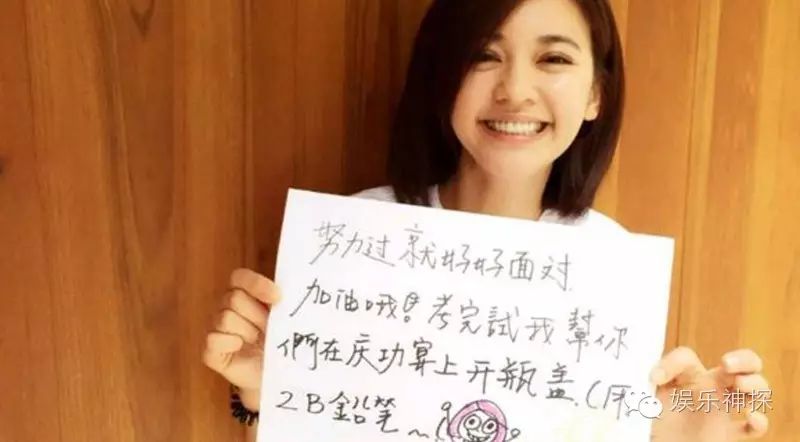 努力过就好好面对
加油哦！考完試我幫你
們在庆功宴上开瓶盖.(用
2B鉛笔~
娱乐神探